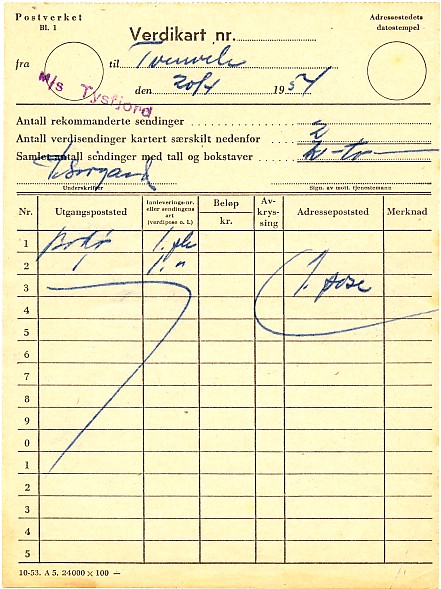 Postverket
Bl. 1
Verdikart nr.
Adressestedets
datostempel
fra
til
m/s Tysfjord
den 20/4 1954
Antall rekommanderte sendinger 2
Antall verdisendinger kartert særskilt nedenfor
Samlet antall sendinger med tall og bokstaver 2 - to
Underskrifter
Sign. av mott. tjenestemann
Nr.
Utgangspoststed
Innleverings-nr.
eller sendingens
art
(verdipose o. l.)
Beløp
kr.
Av-
krys-
sing
Adressepoststed
Merknad
1 Bodø
2
3
4
5
6
7
8
9
0
1
2
3
4
5
10-53. A 5. 24000 × 100 —